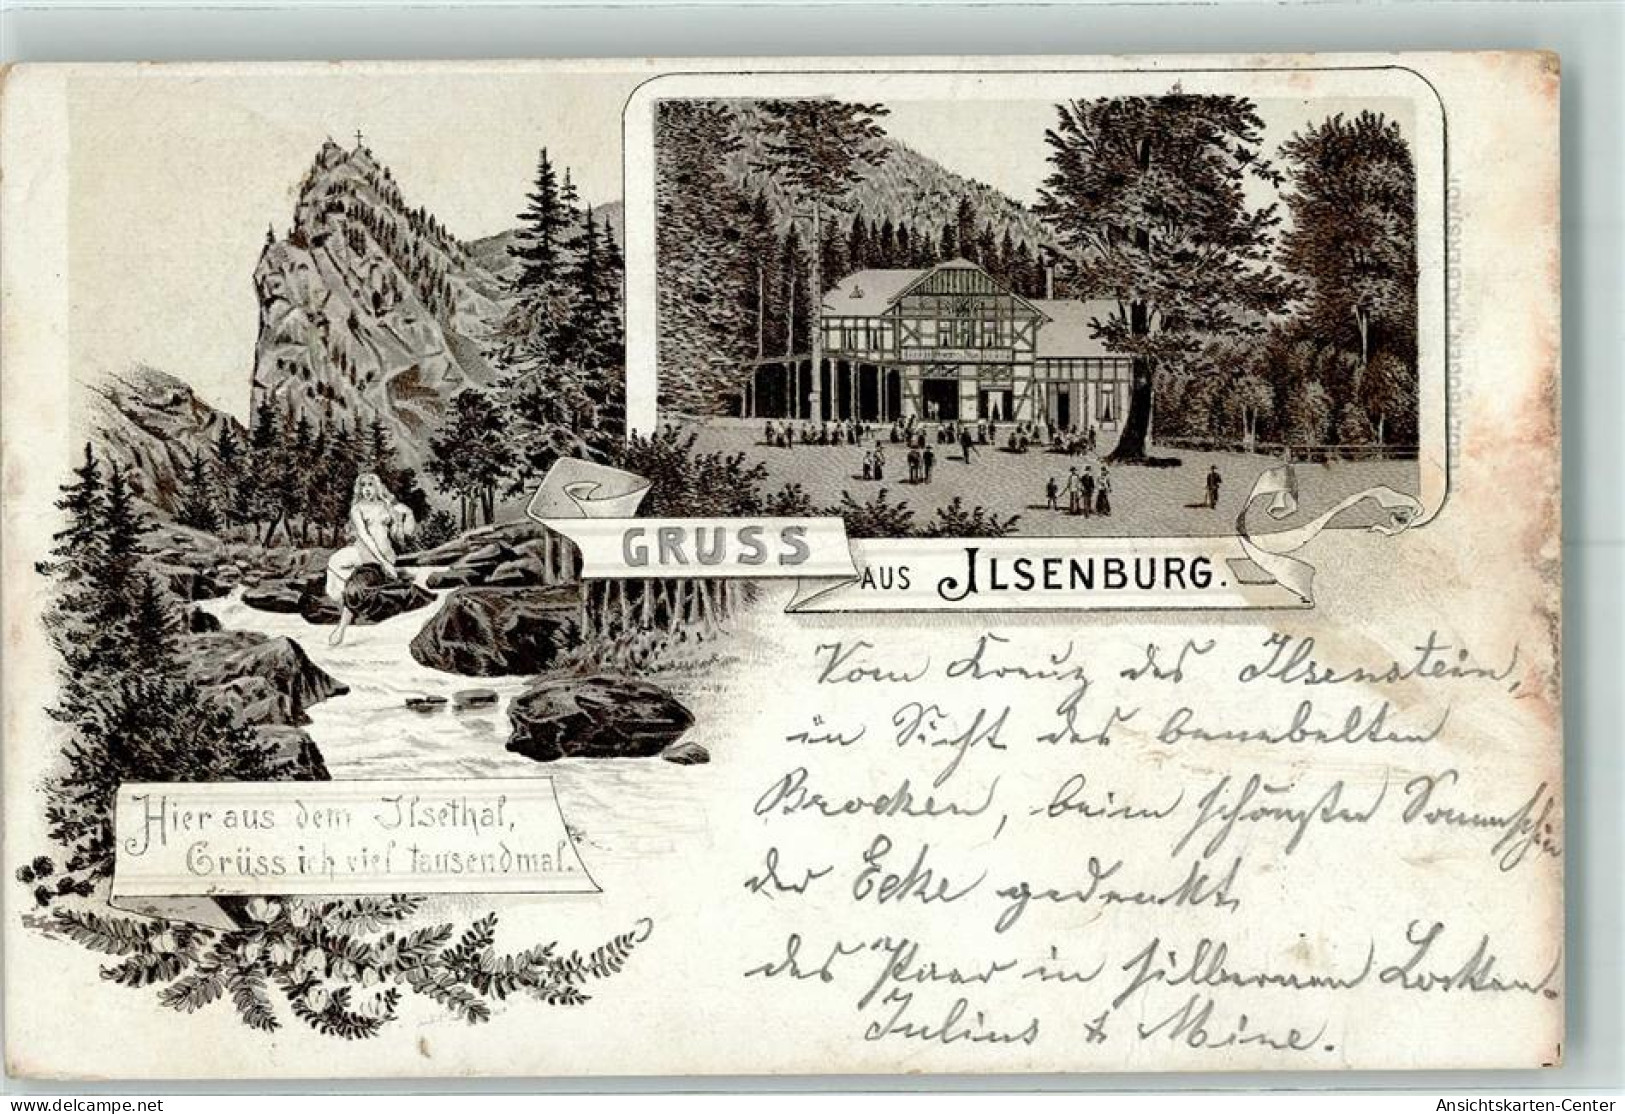 GRUSS
AUS ILSENBURG.
Hier aus dem Ilsethal,
Grüss ich viel tausendmal.
Vom Kreuz des Ilsenstein,
in Sicht des benebelten
Brocken, beim schönsten Sonnenschein
der Ecke gedenkt,
das Paar in silbernen Locken.
Julius & Mine.
delcampe.net
Ansichtskarten-Center